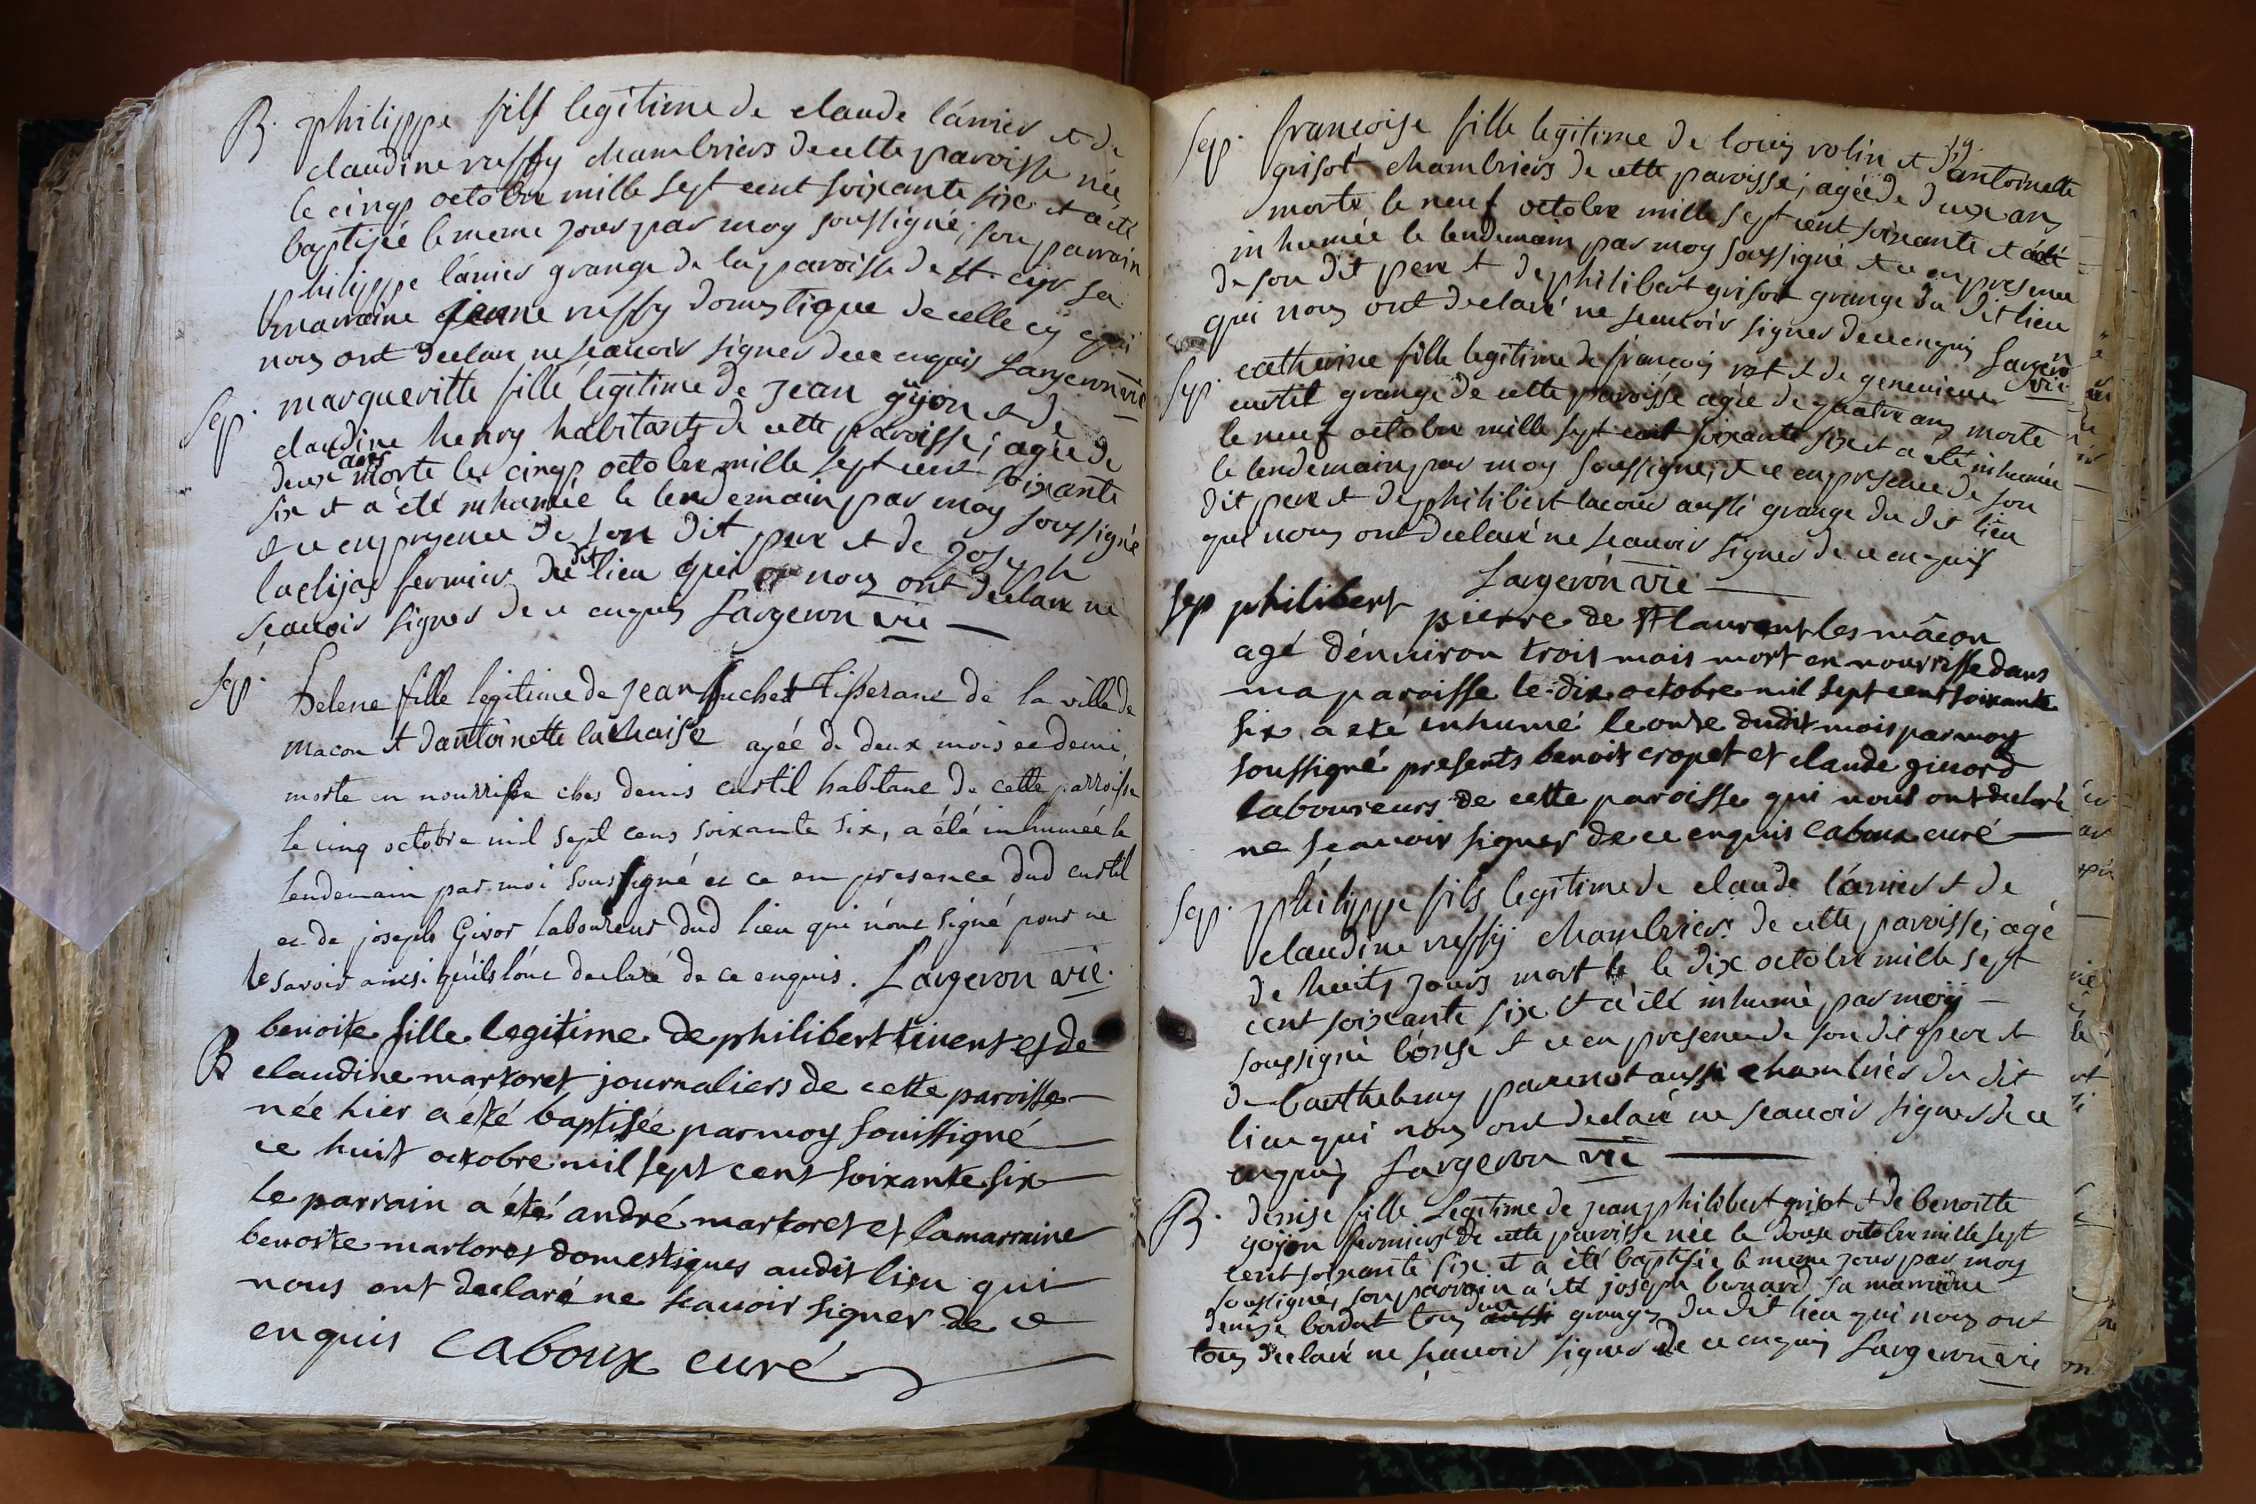 B. philippe fils legitime de claude lámier et de
claudine ruffy chambriers de cette paroisse née
le cinqs octobre mille sept cent soixante six et a été
baptisée le meme jour par moy soussigné, son parrain
philippe lámier granger de la paroisse de St cyr sa
marraine jeanne ruffy domestique de celle cy qui
nous ont declaré ne scauoir signer de ce enquis Largeron vic
sep. margueritte fille legitime de jean gyjon et de
claudine henry habitants de cette paroisse; agée de
deux ans morte le cinqs octobre mille sept cent soixante
six et a été inhumée le lendemain par moy soussigné
et ce en presence de son dit pere et de joseph
fermier du dit lieu qui nous ont declaré ne
scauoir signer de ce enquis Largeron vic
sep. helene fille legitime de jean suchet tisserant de la ville de
macon et dantoinette lachaise agéé de deux mois et demi,
morte en nourrisse ches denis curtil habitant de cette parroisse
le cinq octobre mil sept cens soixante six, a été inhumée le
lendemain par moi soussigné et ce en presence dud curtil
et de joseph Givor laboureur dud lieu qui n'ont signé pour ne
le savoir ainsi qu'ils l'ont declaré de ce enquis. Largeron vic.
B benoite fille legitime de philibert tivent et de
claudine martoret journaliers de cette paroisse
née hier a été baptisée par moy souissigné
ce huit octobre mil sept cent soixante six
le parrain a été andré martoret et la marraine
benoite martoret domestiques audit lieu qui
nous ont declaré ne scauoir signer de ce
enquis Caboux curé
sep. francoise fille legitime de louis rolin et dantoinette
grisot chambriers de cette paroisse; agée de deux ans
morte le neuf octobre mille sept cent soixante et a été
inhumée le lendemain par moy soussigné et ce en presence
de son dit pere et de philibert grisot granger du dit lieu
qui nous ont declaré ne scauoir signer de ce enquis Largeron
vic
sep. catherine fille legitime de francois rat et de genevieve
curtil granger de cette paroisse agée de quatre ans morte
le neuf octobre mille sept cent soixante six et a été inhumée
le lendemain par moy soussigné; et ce en presence de son
dit pere et de philibert lacour aussi granger du dit lieu
qui nous ont declaré ne scauoir signer de ce enquis
Largeron vic
sep philibert pierre de St laurent les mâcon
agé d'enuiron trois mois mort en nourrisse dans
ma paroisse le dix octobre mil sept cent soixante
six a eté inhumé le onze dudit mois par moy
soussigné presents benoit cropet et claude giuord
laboureurs de cette paroisse qui nous ont declaré
ne scauoir signer de ce enquis Caboux curé
sep. philippe fils legitime de claude lámier et de
claudine ruffÿ chambrier de cette paroisse; agé
de huits jours mort le le dix octobre mille sept
cent soixante six et a été inhumé par moÿ
soussigné l'onze et ce en presence de son dit pere et
de barthelemy parenot aussi chambrier du dit
lieu qui nous ont declaré ne scauoir signer de ce
enquis Largeron vic
B. denise fille Legitime de jean philibert grisot et de benoitte
goyon fermiers de cette paroisse née le douse octobre mille sept
cent soixante six et a été baptisée le meme jour par moy
soussigné, son parrain a été joseph bernard sa marraine
denise bordat tous deux granger du dit lieu qui nous ont
tous declaré ne scauoir signer de ce enquis Largeron vic